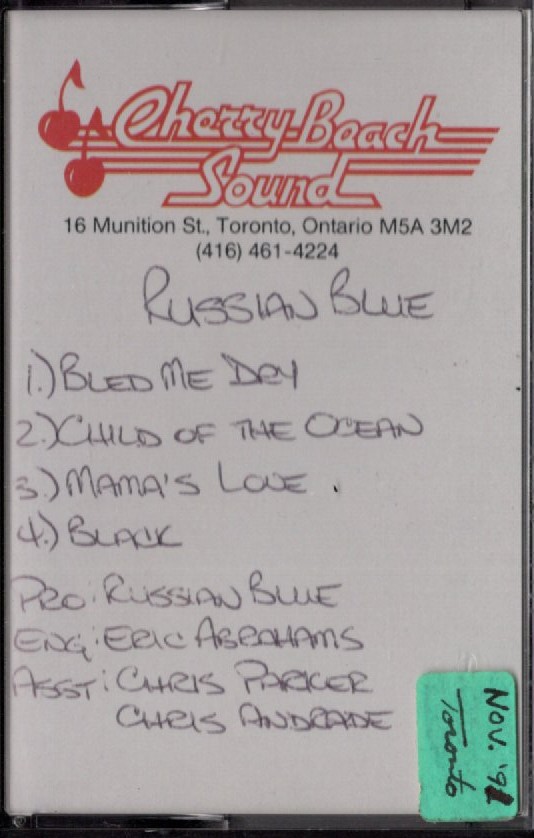 Cherry Beach
Sound
16 Munition St., Toronto, Ontario M5A 3M2
(416) 461-4224
RUSSIAN BLUE
1.) BLED ME DRY
2.) CHILD OF THE OCEAN
3.) MAMA'S LOVE .
4.) BLACK
PRO: RUSSIAN BLUE
ENG: ERIC ABRAHAMS
ASST: CHRIS PARKER
CHRIS ANDRADE
NOV. '91
Toronto